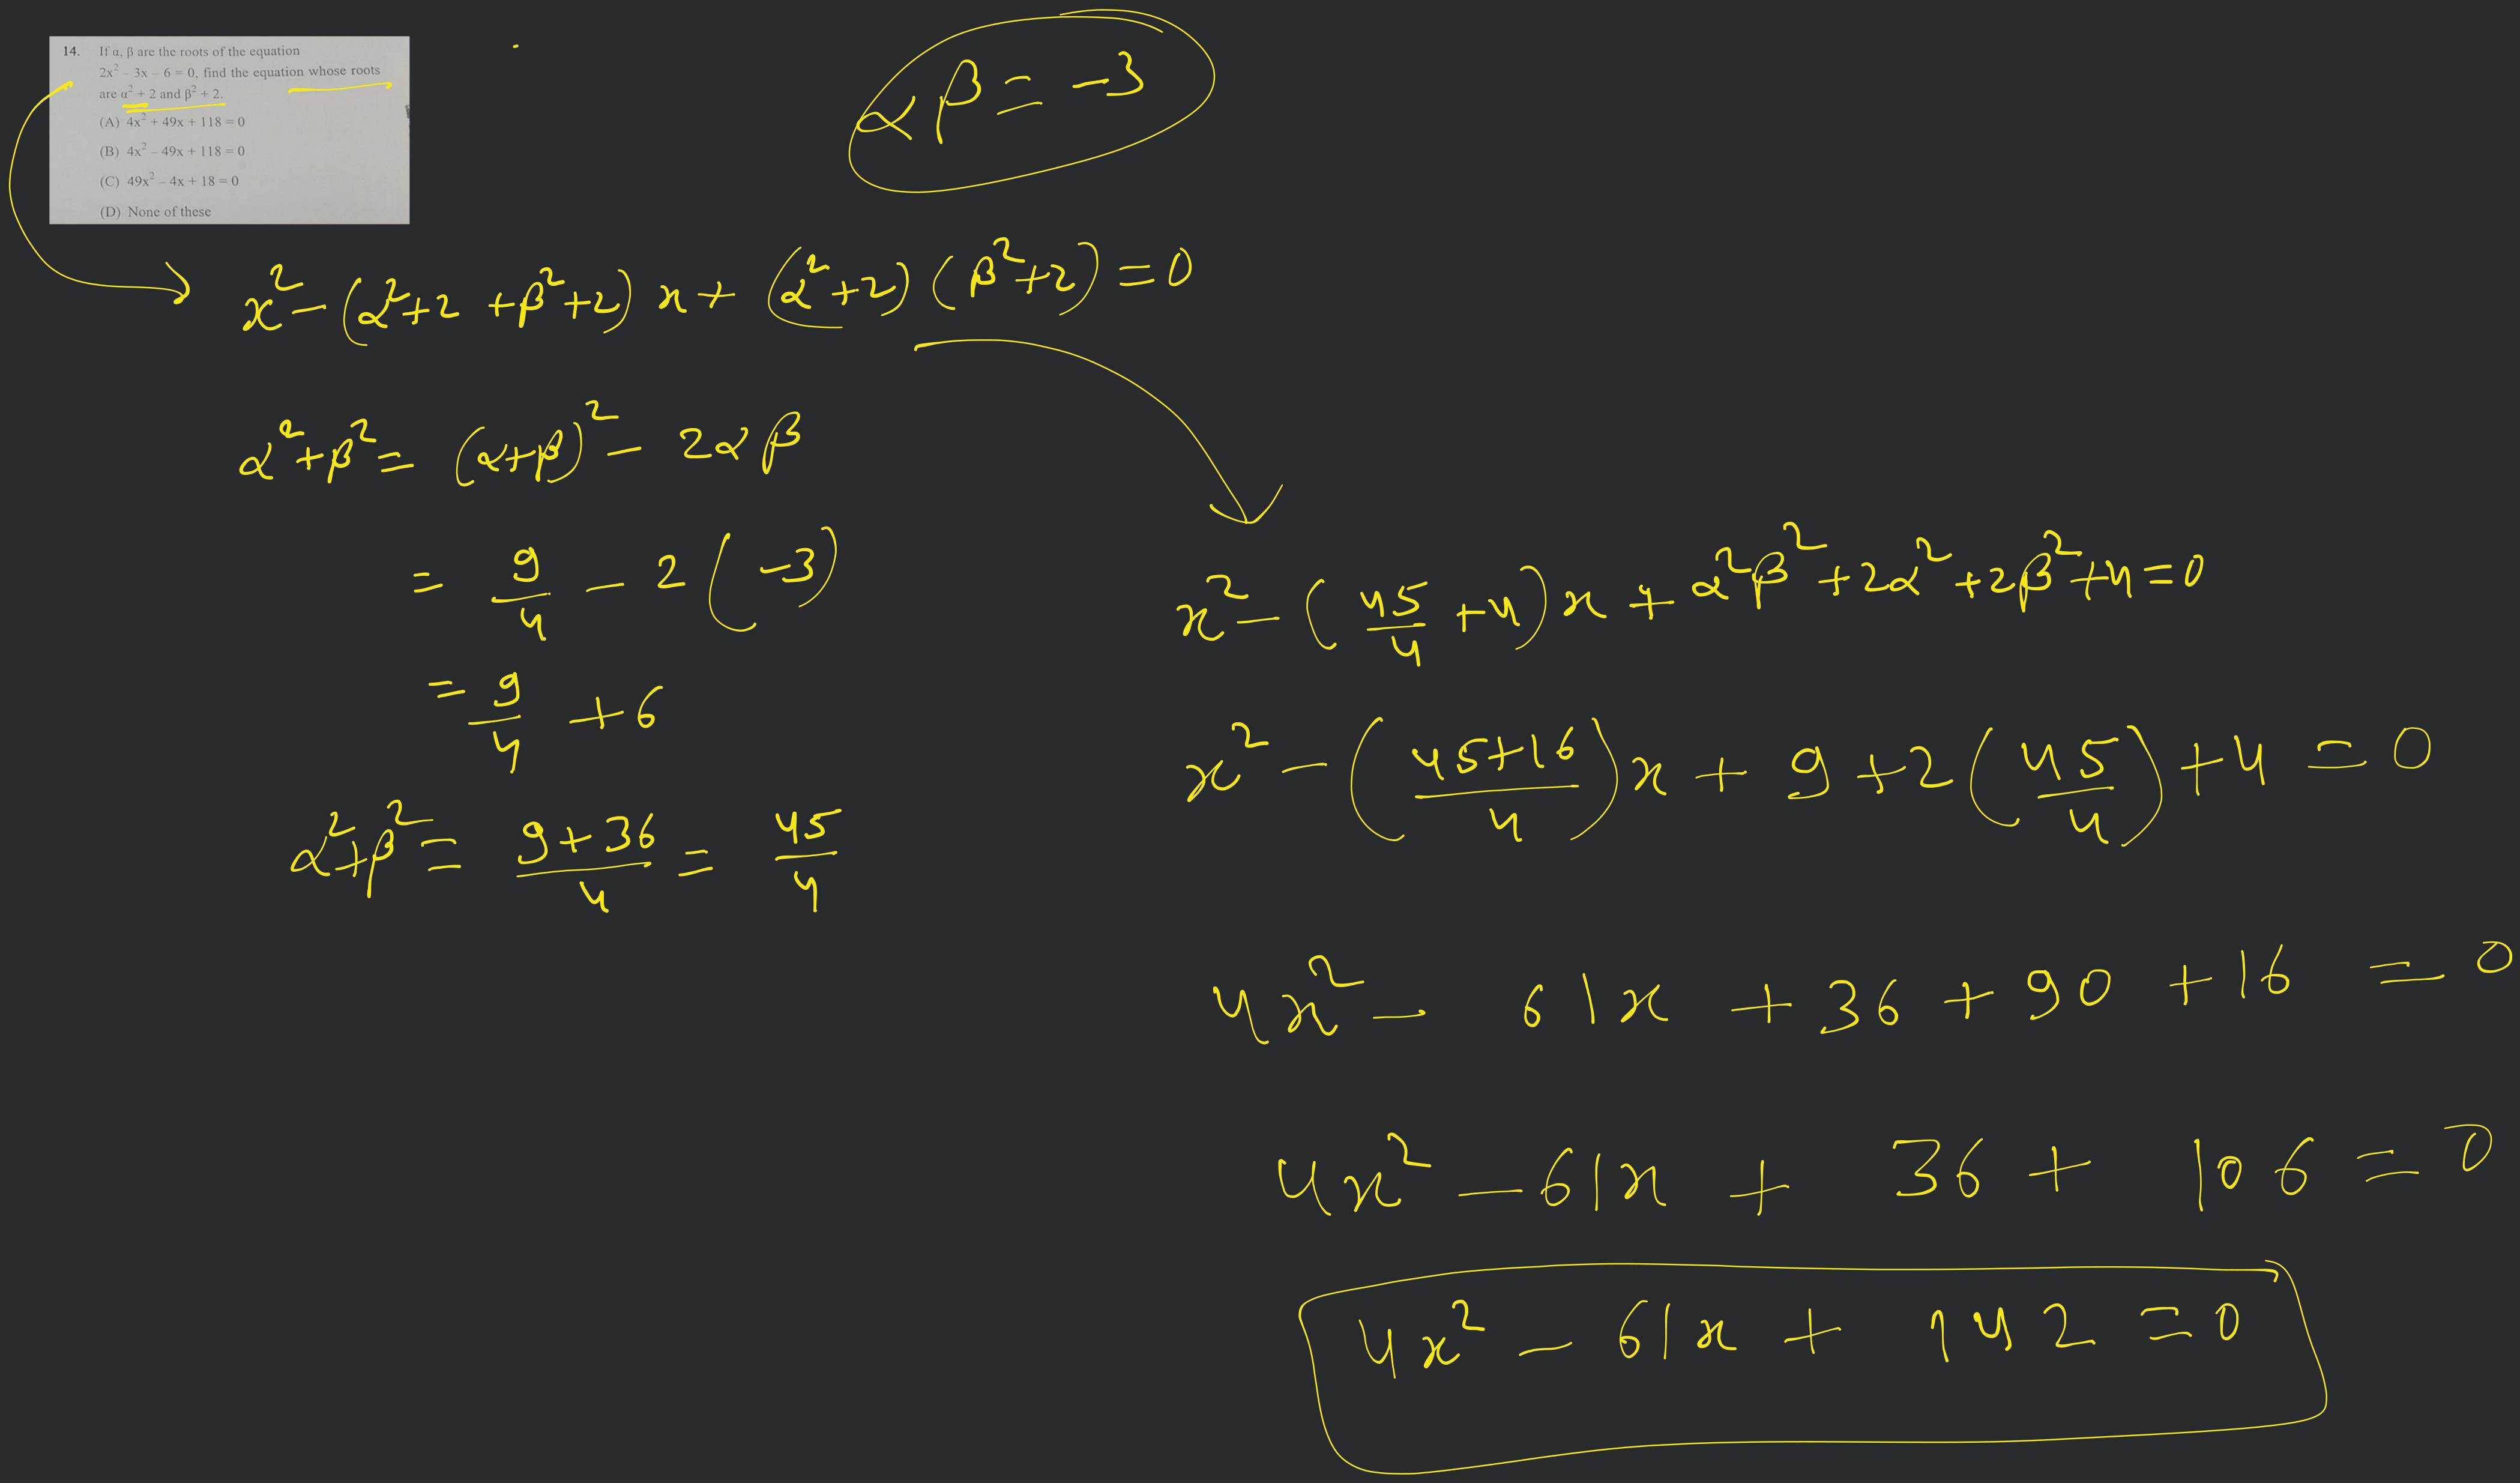 14. If α, β are the roots of the equation
2x² – 3x – 6 = 0, find the equation whose roots
are α² + 2 and β² + 2.
(A) 4x² + 49x + 118 = 0
(B) 4x² – 49x + 118 = 0
(C) 49x² – 4x + 18 = 0
(D) None of these
αβ = -3
x² - (α²+2 +β²+2) x + (α²+2) (β²+2) = 0
α²+β² = (α+β)² - 2αβ
= 9/4 - 2(-3)
= 9/4 + 6
α²+β² = (9+36)/4 = 45/4
x² - (45/4 +4) x + α²β² + 2α² + 2β² + 4 = 0
x² - ((45+16)/4) x + 9 + 2(45/4) + 4 = 0
4x² - 61x + 36 + 90 + 16 = 0
4x² - 61x + 36 + 106 = 0
4x² - 61x + 142 = 0